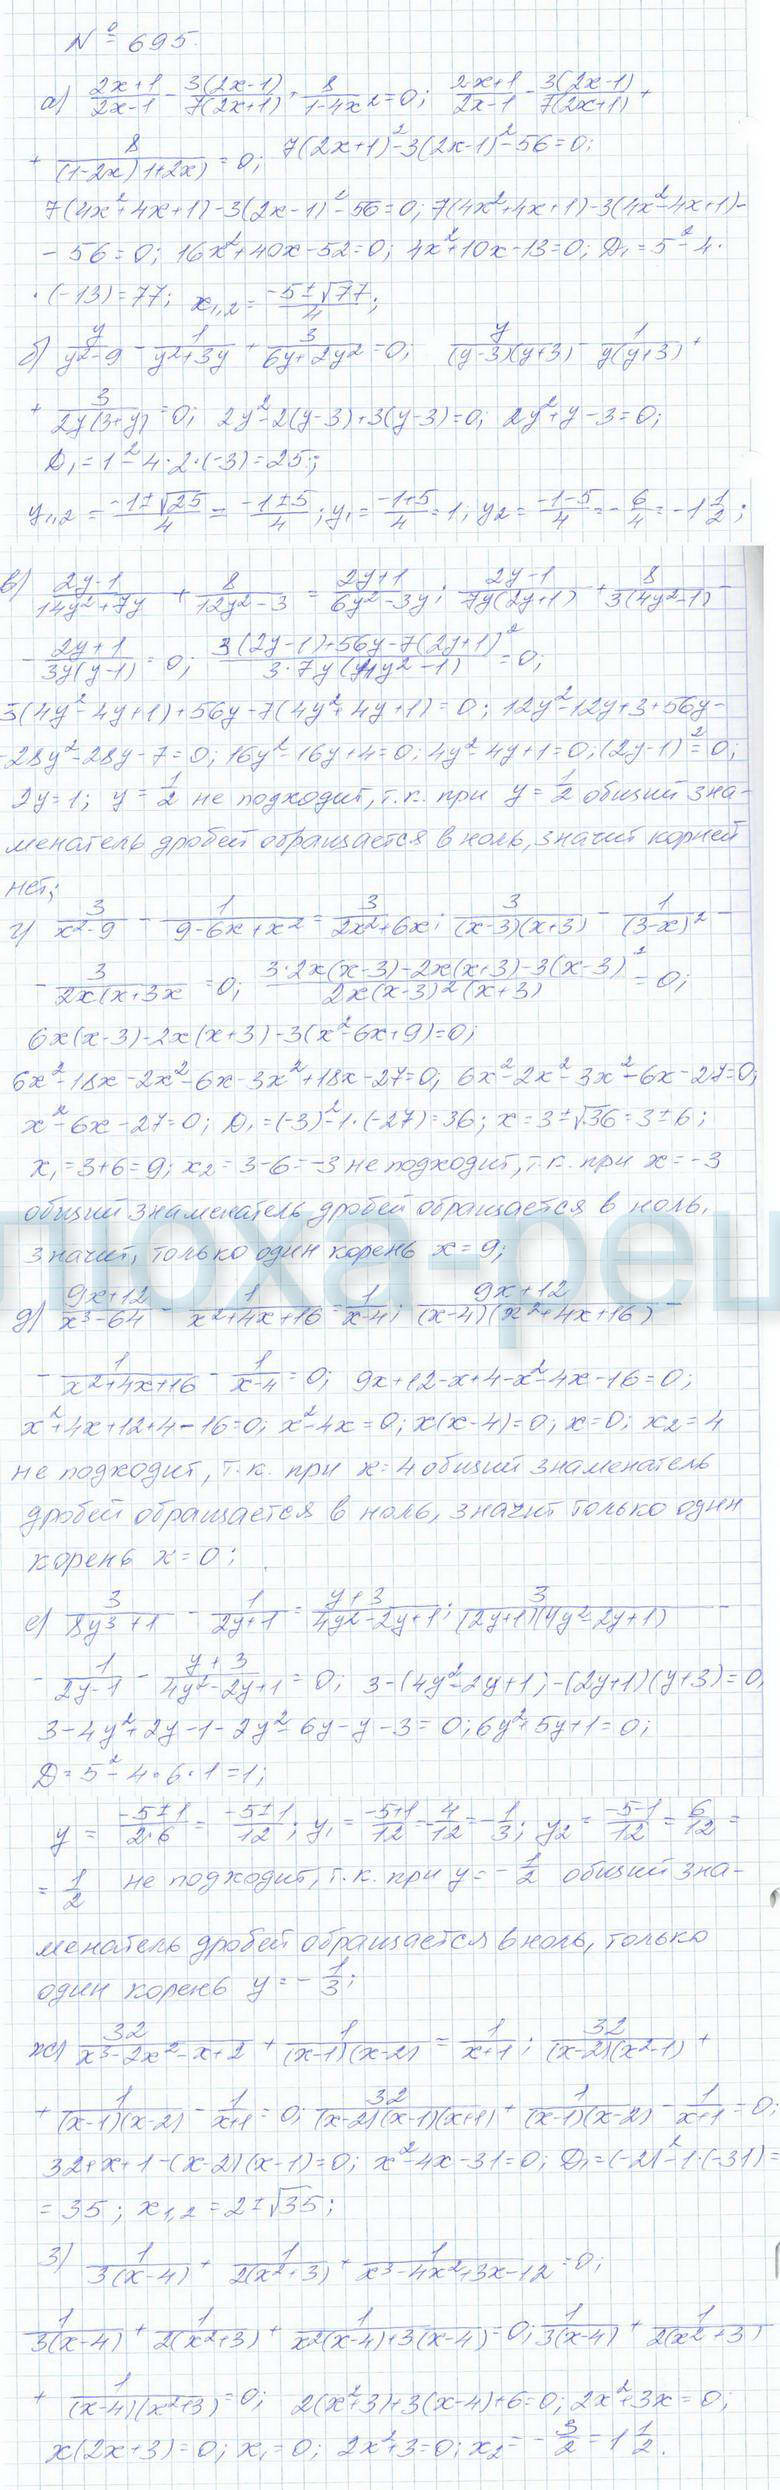 № 695.
а) (2x+1)/(2x-1) - 3(2x-1)/(7(2x+1)) + 8/(1-4x²) = 0; (2x+1)/(2x-1) - 3(2x-1)/(7(2x+1)) +
+ 8/((1-2x)1+2x) = 0; 7(2x+1)²-3(2x-1)²-56=0;
7(4x²+4x+1)-3(2x-1)²-56=0; 7(4x²+4x+1)-3(4x²-4x+1)-
-56=0; 16x²+40x-52=0; 4x²+10x-13=0; D₁=5²-4·
·(-13)=77; x₁,₂ = (-5±√77)/4;
б) y/(y²-9) - 1/(y²+3y) + 3/(6y+2y²) = 0; y/((y-3)(y+3)) - 1/(y(y+3)) +
+ 3/(2y(3+y)) = 0; 2y²-2(y-3)+3(y-3)=0; 2y²+y-3=0;
D₁=1²-4·2·(-3)=25;
y₁,₂ = (-1±√25)/4 = (-1±5)/4; y₁ = (-1+5)/4 = 1; y₂ = (-1-5)/4 = -6/4 = -1 1/2;
в) (2y-1)/(14y²+7y) + 8/(12y²-3) = (2y+1)/(6y²-3y); (2y-1)/(7y(2y+1)) + 8/(3(4y²-1)) -
- (2y+1)/(3y(y-1)) = 0; (3(2y-1)+56y-7(2y+1)²)/(3·7y(4y²-1)) = 0;
3(4y²-4y+1)+56y-7(4y²+4y+1)=0; 12y²-12y+3+56y-
-28y²-28y-7=0; 16y²-16y+4=0; 4y²-4y+1=0; (2y-1)²=0;
2y=1; y=1/2 не подходит, т.к. при y=1/2 общий зна-
менатель дробей обращается в ноль, значит корней
нет;
г) 3/(x²-9) - 1/(9-6x+x²) = 3/(2x²+6x); 3/((x-3)(x+3)) - 1/(3-x)² -
- 3/(2x(x+3x) = 0; (3·2x(x-3)-2x(x+3)-3(x-3)²)/(2x(x-3)²(x+3)) = 0;
6x(x-3)-2x(x+3)-3(x²-6x+9)=0;
6x²-18x-2x²-6x-3x²+18x-27=0; 6x²-2x²-3x²-6x-27=0;
x²-6x-27=0; D₁=(-3)²-1·(-27)=36; x=3±√36=3±6;
x₁=3+6=9; x₂=3-6=-3 не подходит, т.к. при x=-3
общий знаменатель дробей обращается в ноль,
значит, только один корень x=9;
д) (9x+12)/(x³-64) - 1/(x²+4x+16) = 1/(x-4); (9x+12)/((x-4)(x²+4x+16)) -
- 1/(x²+4x+16) - 1/(x-4) = 0; 9x+12-x+4-x²-4x-16=0;
x²+4x+12+4-16=0; x²-4x=0; x(x-4)=0; x=0; x₂=4
не подходит, т.к. при x=4 общий знаменатель
дробей обращается в ноль, значит только один
корень x=0;
е) 3/(8y³+1) - 1/(2y+1) = (y+3)/(4y²-2y+1); 3/((2y+1)(4y²-2y+1)) -
- 1/(2y-1) - (y+3)/(4y²-2y+1) = 0; 3-(4y²-2y+1)-(2y+1)(y+3)=0,
3-4y²+2y-1-2y²-6y-y-3=0; 6y²+5y+1=0;
D=5²-4·6·1=1;
y = (-5±1)/(2·6) = (-5±1)/12; y₁ = (-5+1)/12 = -4/12 = -1/3; y₂ = (-5-1)/12 = 6/12 =
= 1/2 не подходит, т.к. при y=-1/2 общий зна-
менатель дробей обращается в ноль, только
один корень y=-1/3;
ж) 32/(x³-2x²-x+2) + 1/((x-1)(x-2)) = 1/(x+1); 32/((x-2)(x²-1)) +
+ 1/((x-1)(x-2)) - 1/(x+1) = 0; 32/((x-2)(x-1)(x+1)) + 1/((x-1)(x-2)) - 1/(x+1) = 0;
32+x+1-(x-2)(x-1)=0; x²-4x-31=0; D₁=(-2)²-1·(-31)=
=35; x₁,₂=2±√35;
з) 1/(3(x-4)) + 1/(2(x²+3)) + 1/(x³-4x²+3x-12) = 0;
1/(3(x-4)) + 1/(2(x²+3)) + 1/(x²(x-4)+3(x-4)) = 0; 1/(3(x-4)) + 1/(2(x²+3))
+ 1/((x-4)(x²+3)) = 0; 2(x²+3)+3(x-4)+6=0; 2x²+3x=0;
x(2x+3)=0; x₁=0; 2x²+3=0; x₂=-3/2=1 1/2.